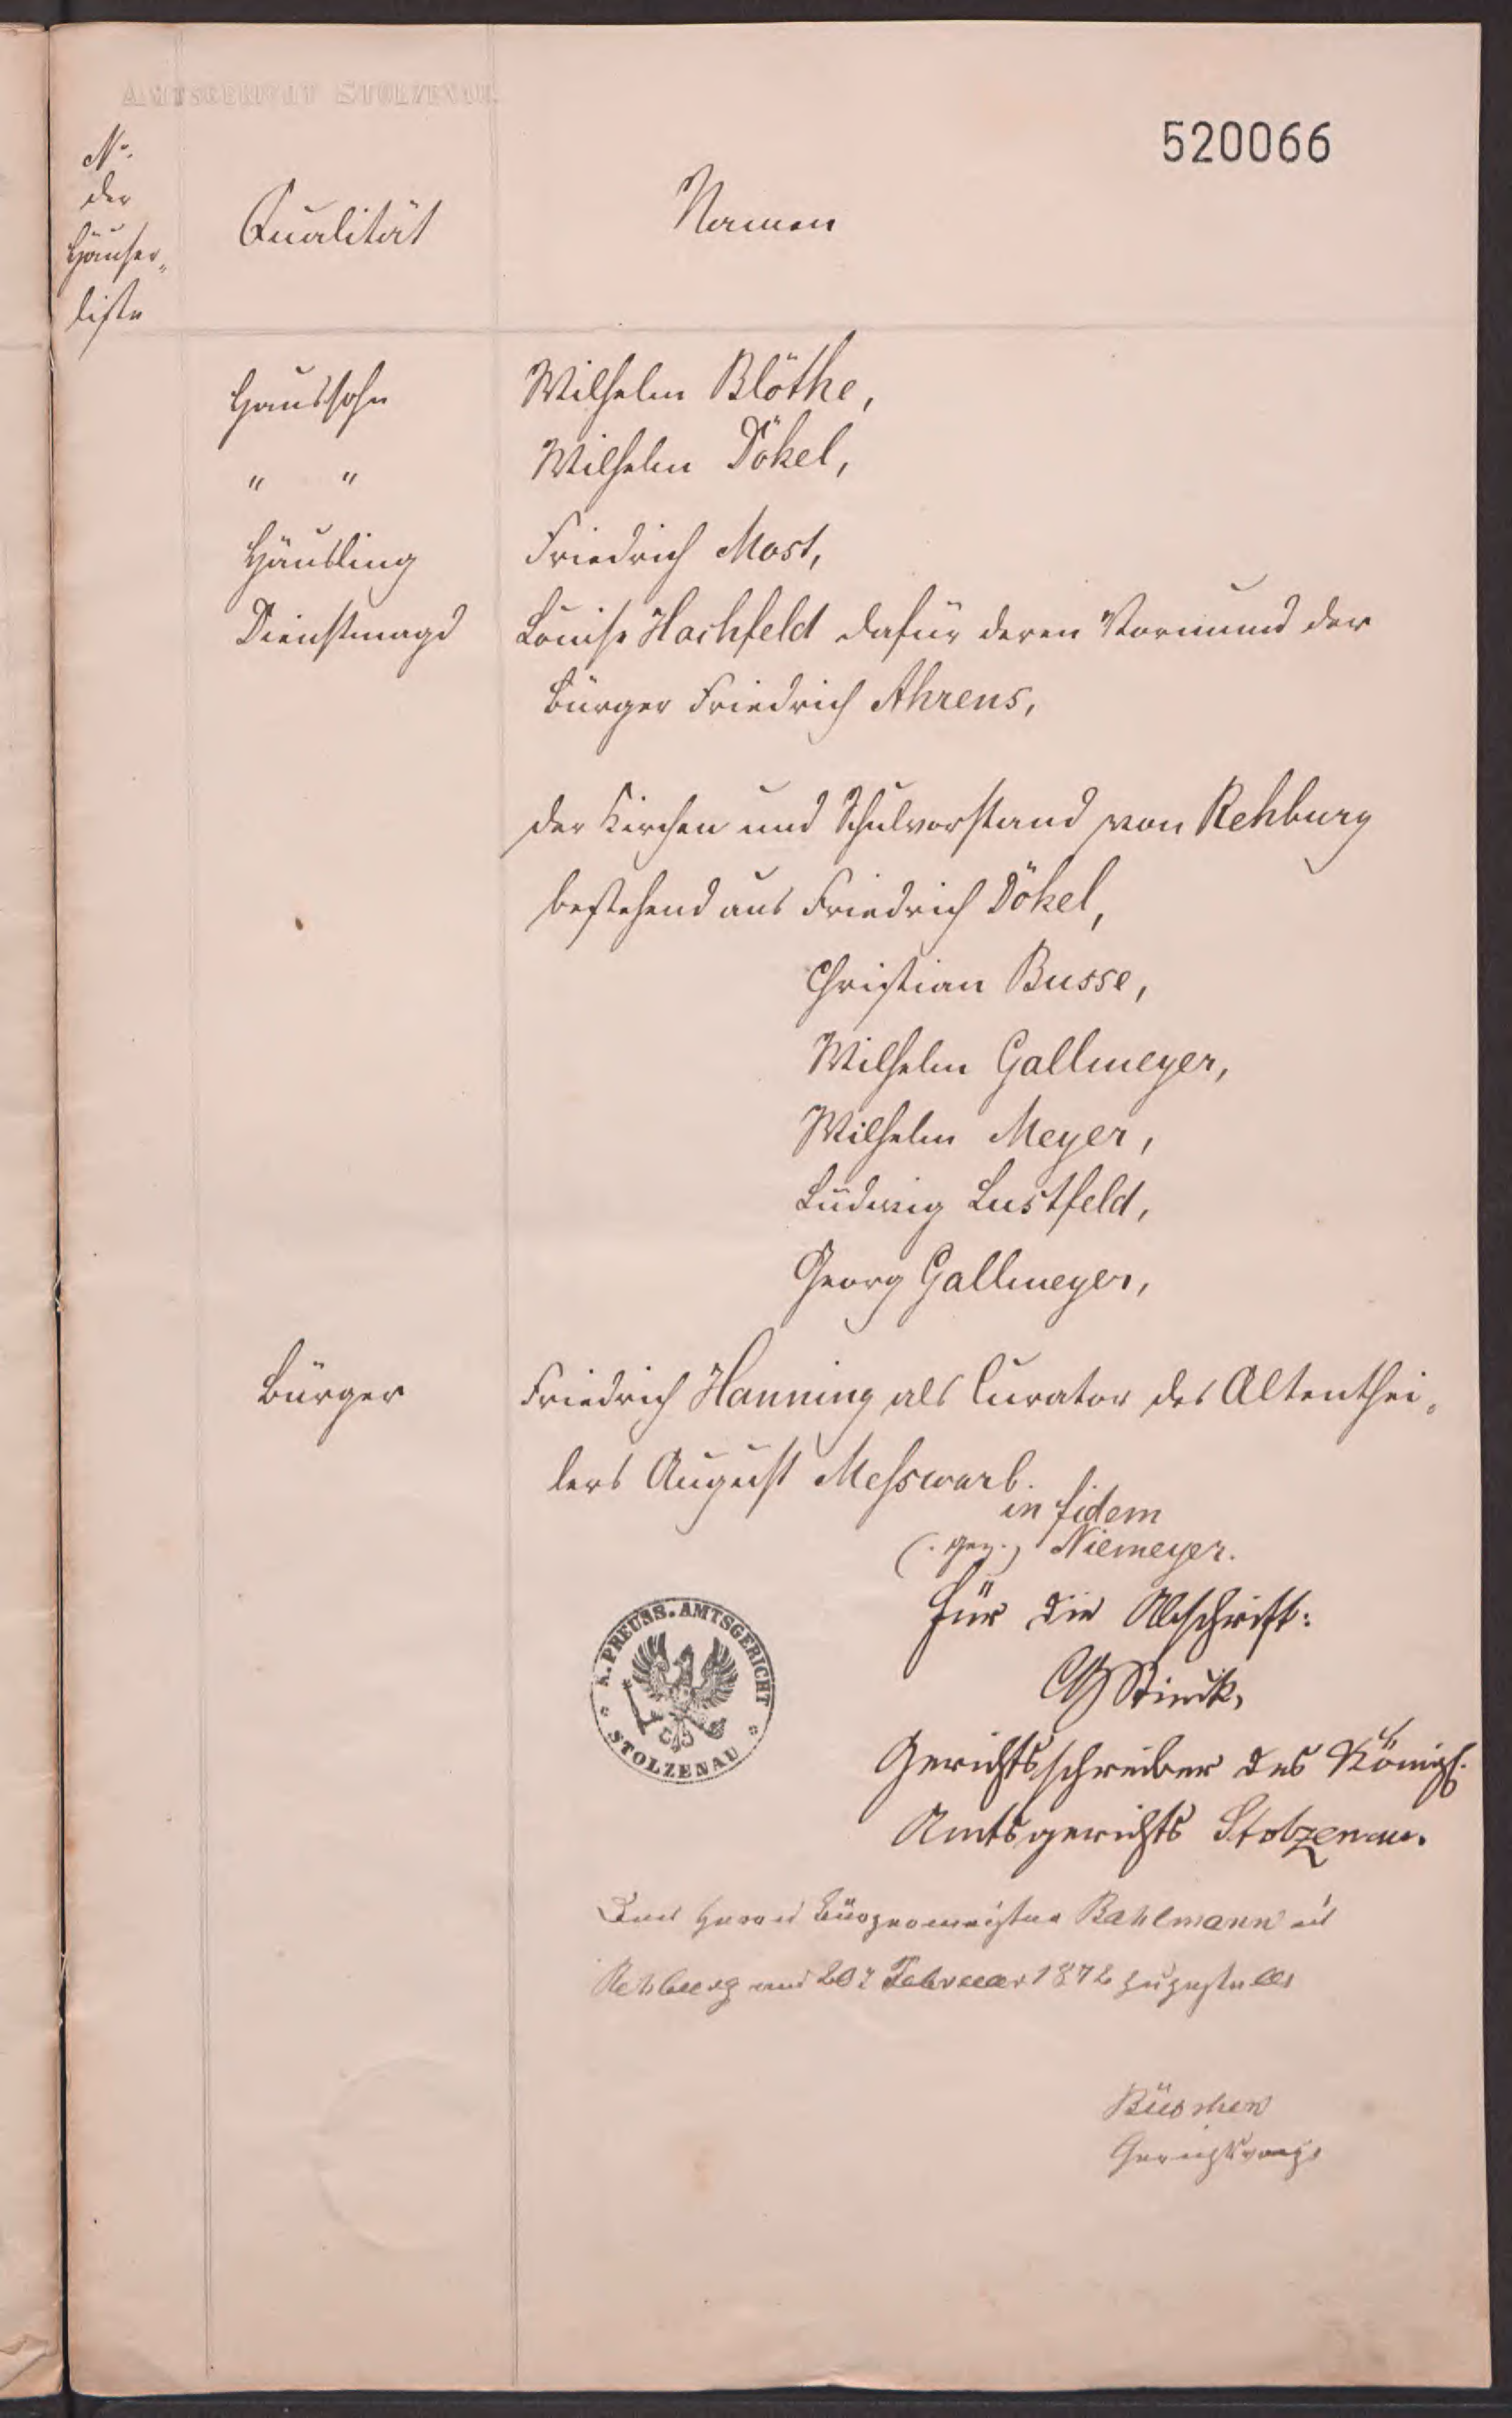 AMTSGERICHT STOLZENAU.
520066
No.
der
Häuser-
liste
Qualität
Namen
Haussohn
Wilhelm Blöthe,
" "
Wilhelm Dökel,
Häusling
Friedrich Most,
Dienstmagd
Louise Hachfeld dafür deren Vormund der
Bürger Friedrich Ahrens,
der Kirchen und Schulvorstand von Rehburg
bestehend aus Friedrich Dökel,
Christian Busse,
Wilhelm Gallmeyer,
Wilhelm Meyer,
Ludwig Lustfeld,
Georg Gallmeyer,
Bürger
Friedrich Hanning als Curator des Altenthei-
lers August Messwarb.
in fidem
(. gez.) Niemeyer.
Für die Abschrift:
K. PREUSS. AMTSGERICHT
STOLZENAU
Gerichtsschreiber des Königl.
Amtsgerichts Stolzenau.
Dem Herrn Bürgermeister Bahlmann in
Rehburg am Februar 1872 zugestellt
Gerichtsvogt